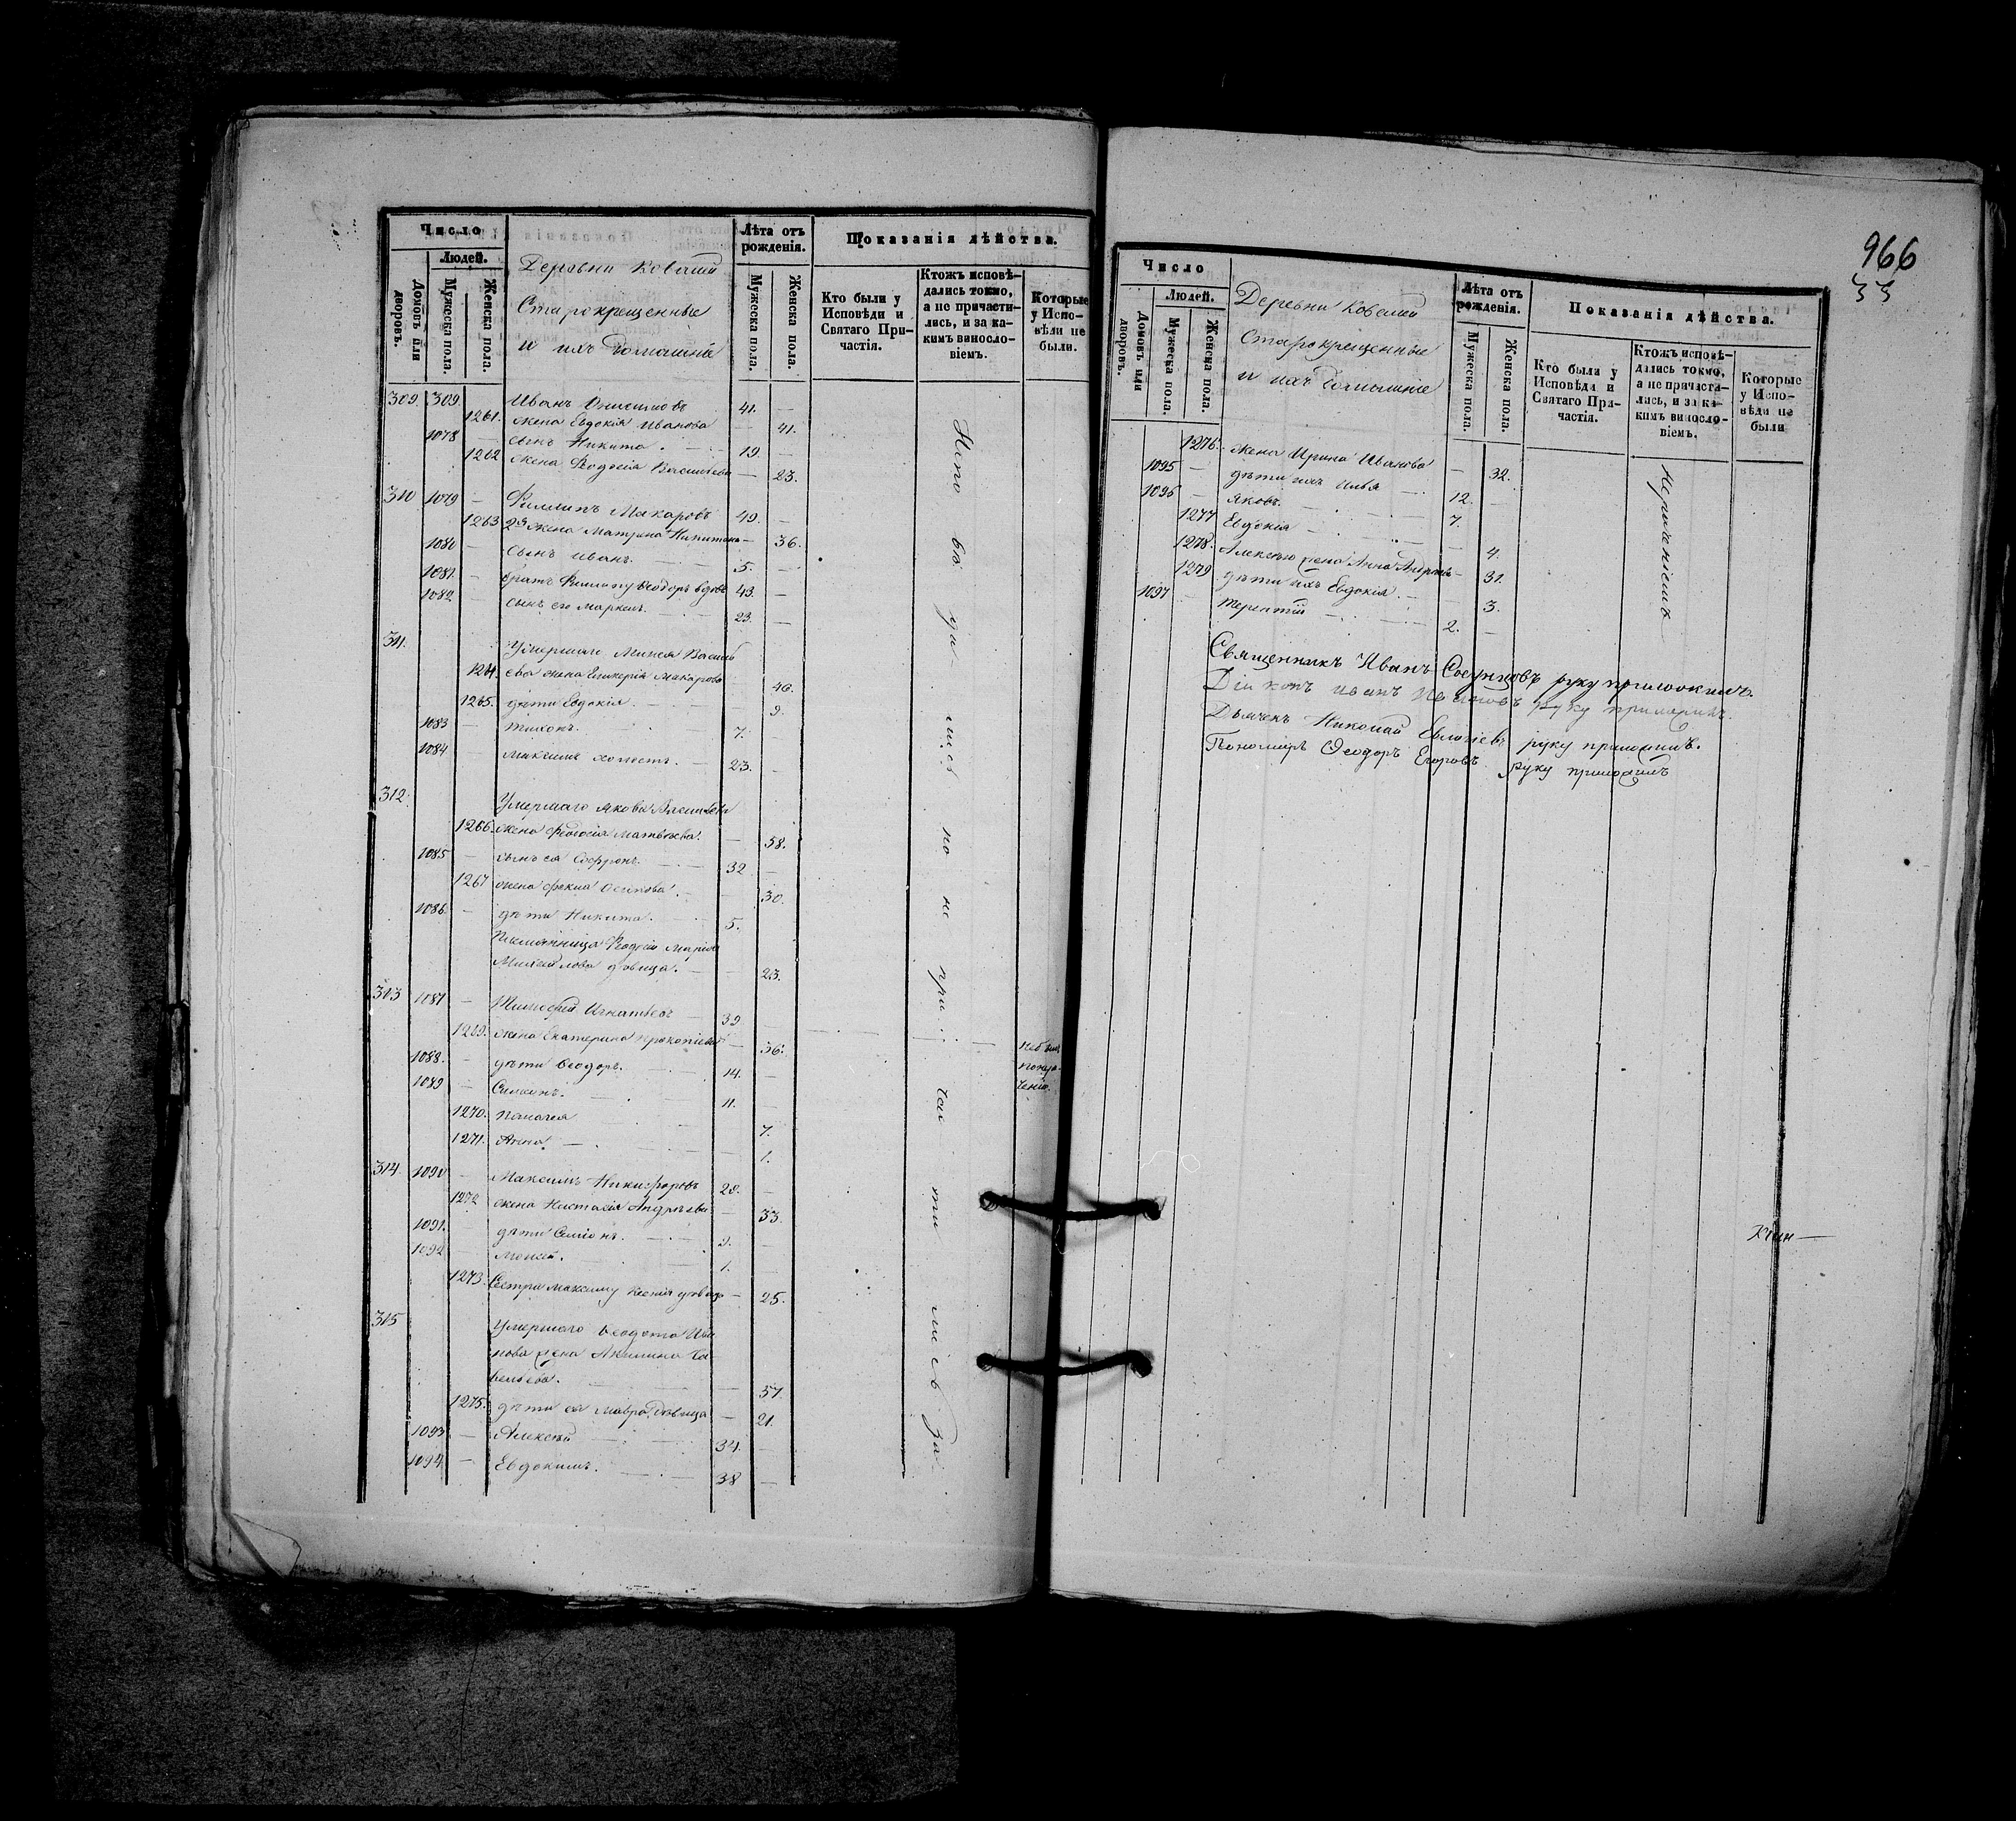 Число
Людей.
Домовъ или дворовъ.
Мужеска пола.
Женска пола.
Деревни Ковалей
Старокрещенные
и ихъ домашніе
Лѣта отъ рожденія.
Мужеска пола.
Женска пола.
Показанія дѣйства.
Кто были у Исповѣди и Святаго Причастія.
Ктожъ исповѣдались токмо, а не причастились, и за какимъ винословіемъ.
Которые у Исповѣди не были.
309. 309. Иванъ 41. —
1261. жена Евдокія Иванова — 41.
1078 — сынъ Никита. 19. —
1262 жена Ѳеодосія Васильева — 23.
310 1079 — Филиппъ Макаровъ 49. —
1263 2я жена Матрена — 36.
1080 — сынъ Иванъ. 5. —
1081. — братъ Филиппу Ѳеодоръ вдовъ 43. —
1082. сынъ его Маркелъ. 23. —
311. Умершаго Василь
1264. ева жена Макарова 46.
1265. дѣти Евдокія. 9.
1083 — Тихонъ. 7. —
1084 — Максимъ холостъ. 23. —
312. Умершаго Якова Васильева
1266. жена Ѳеодосія Матвѣева. — 58.
1085 — сынъ ея Софронъ. 32 —
1267 жена Осипова. 30.
1086. — дѣти Никита. 5.
Племянница Ѳеодосіи Марія
Михайлова дѣвица. — 23.
313 1087 — Тимофей Игнатьевъ 39
1269. жена Екатерина Прокопіева — 36.
1088. — дѣти Ѳеодоръ. 14. —
1089 — Симеонъ. 11. —
1270. Пелагея 7.
1271. Анна 1.
314. 1090 — Максимъ Никифоровъ 28. —
1272 жена Настасія Андреева — 33.
1091. дѣти Симіонъ. 3. —
1092 — Моисей. 1. —
1273. Сестра Максиму Ксенія дѣвица — 25.
315 Умершаго Ѳеодота Ива
нова жена Акилина Са
вельева. — 57.
1275. дѣти ея Мавра, дѣвица — 21.
1093 — Алексѣй 34. —
1094. — Евдокимъ. 38 —
не были по
966
33
Число
Людей.
Домовъ или дворовъ.
Мужеска пола.
Женска пола.
Деревни Ковалей
Старокрещенные
и ихъ домашніе
Лѣта отъ рожденія.
Мужеска пола.
Женска пола.
Показанія дѣйства.
Кто были у Исповѣди и Святаго Причастія.
Ктожъ исповѣдались токмо, а не причастились, и за какимъ винословіемъ.
Которые у Исповѣди не были
1276. жена Ирина Иванова — 32.
1095 — дѣти ихъ Илья 12. —
1096 — Яковъ. 7.
1277 Евдокія — 4.
1278. Алексѣю жена Анна Андреева — 31.
1279 дѣти ихъ Евдокія. — 3.
1097 — Терентій 2. —
Священникъ Иванъ руку приложилъ.
Діаконъ Иванъ руку приложилъ.
Дьячекъ Николай Евлогіевъ руку приложилъ.
Пономарь Ѳеодоръ Егоровъ руку приложилъ